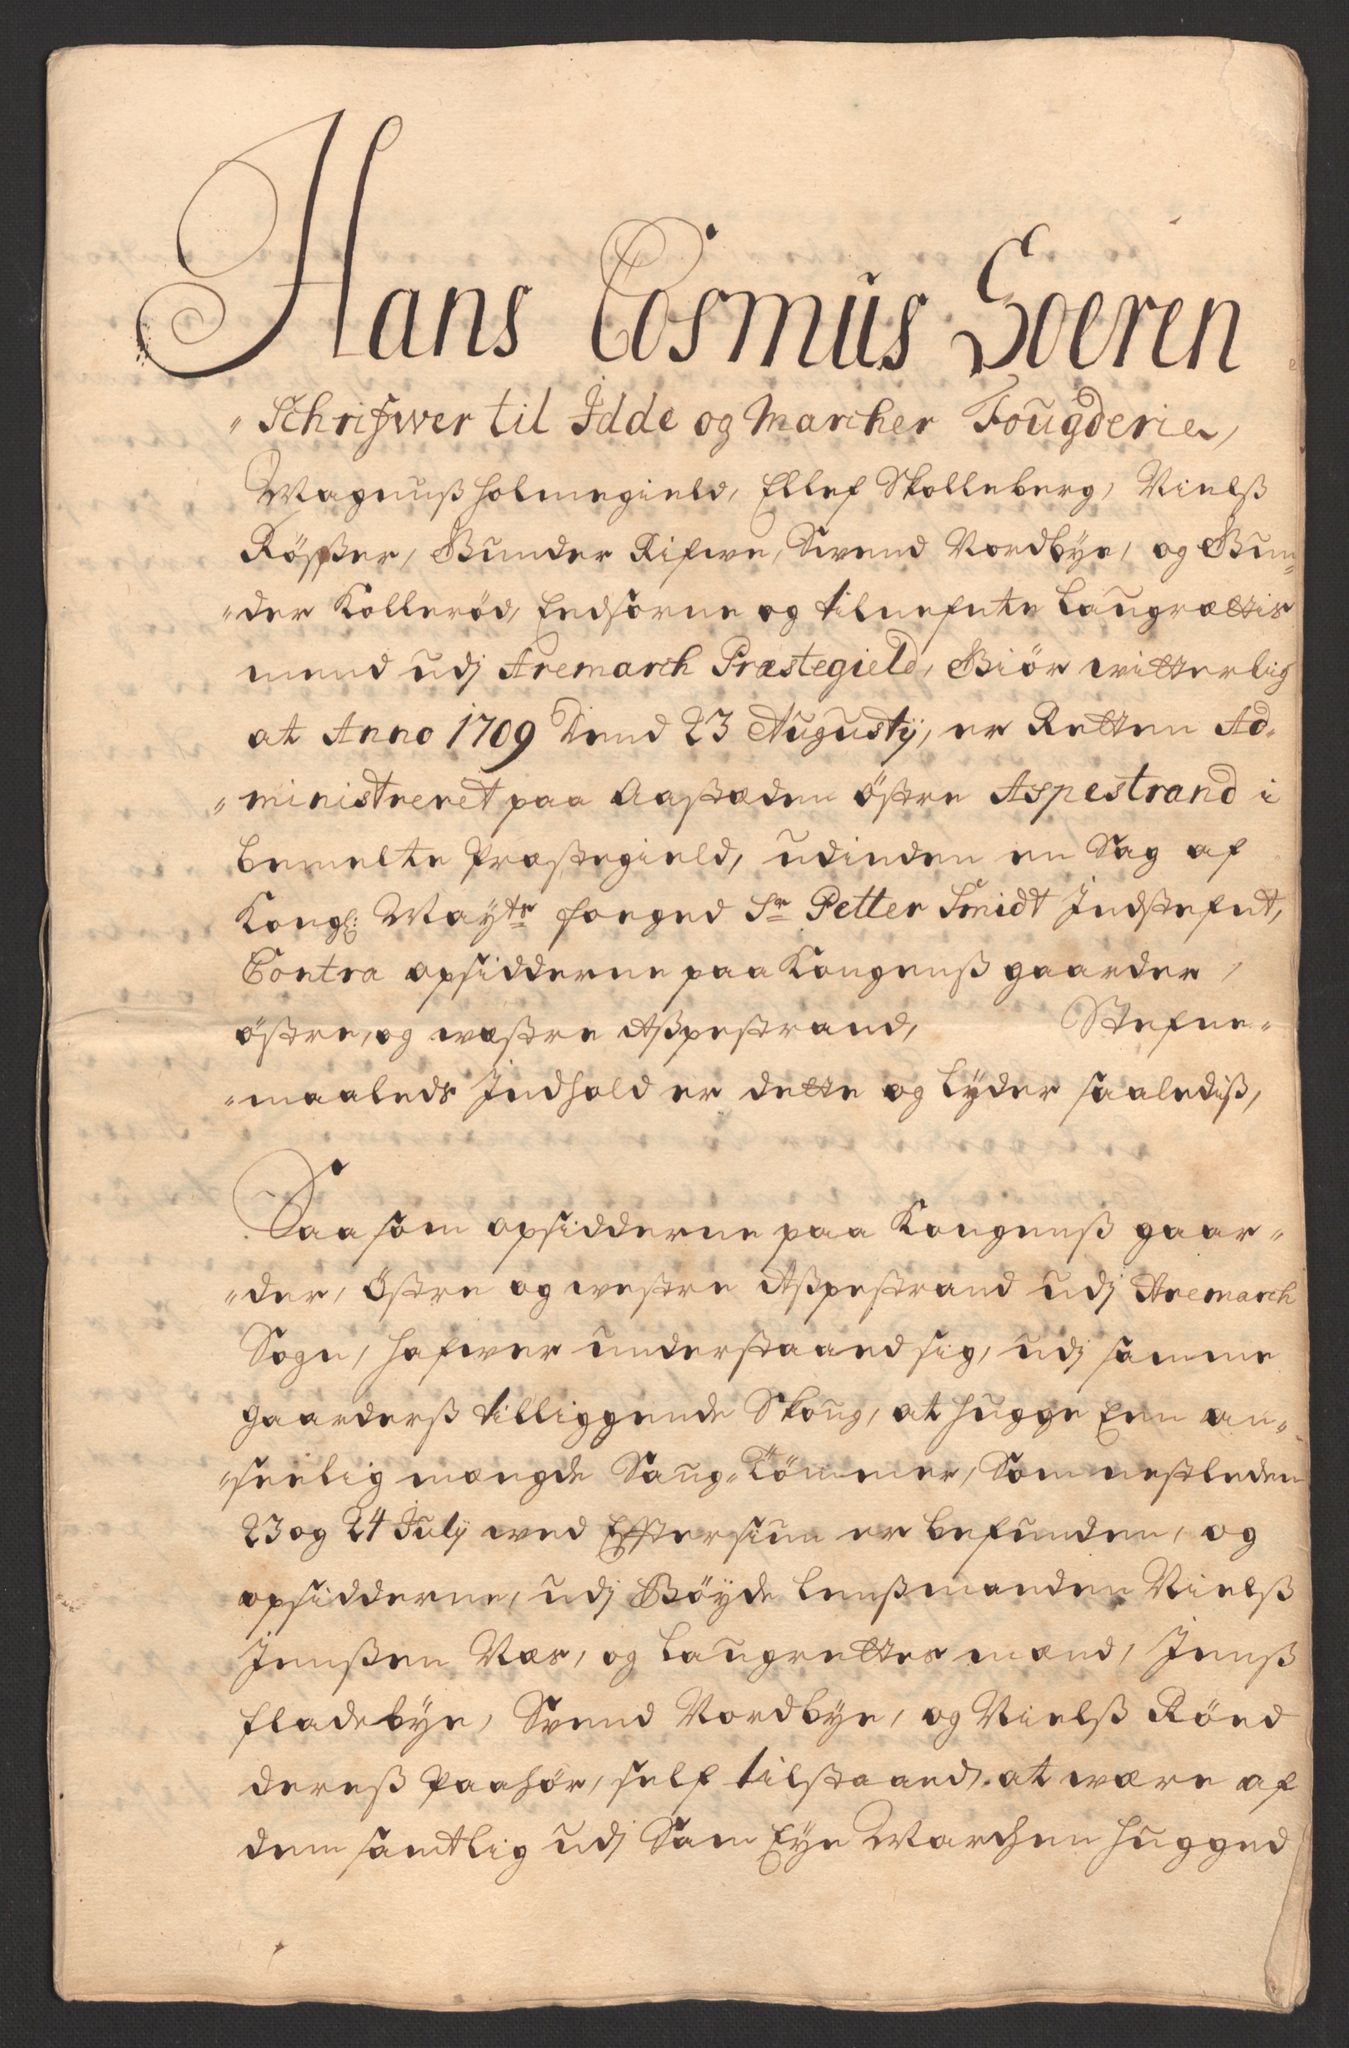 Hans Cosmus Soeren
"Schrifwer til Idde og Marcher Fougderie,
Magnuß Holmegield, Ellef Skolleberg, Nielß
Rößer, Gunder Rifwe, Swend Nordbye, og Gun"
"der Kollerød, Eedsorne og tilnefnte Laugrættis
mend udj Aremarch Præstegield, Giör witterlig
at Anno 1709 Dend 23 Augustij, er Retten Ad"
"ministreret paa Aastæden östre Aspestrand i
bemelte Præstegield, udinden en Sag af
Kongl: Mayts foeged Sr Petter Smidt Indstefnt,
Contra opsidderne paa Kongenß gaarder,
östre, og westre Aßpestrand, Stefne"
"maaleds Indhold er dette og lyder saalediß,
Saasom opsidderne paa Kongenß gaar"
"der, Östre og westre Aßpestrand udj Aremarch
Sogn, hafwer understaaed sig, udj samme
gaarderß tilliggende Skoug, at hugge Een an"
"seelig mængde Saug"Tömmer, Som nestleden
23 og 24 July wed Efftersiun er befunden, og
opsidderne, udj Böyde lenßmanden Nielß
Jenßen Næs, og Laugrettes mænd, Jenß
fladebye, Svend Nordbye, og Nielß Röed
dereß Paahör, self tilstaaed, at være af
dem samtlig udj Sam Eye Marchen hugged